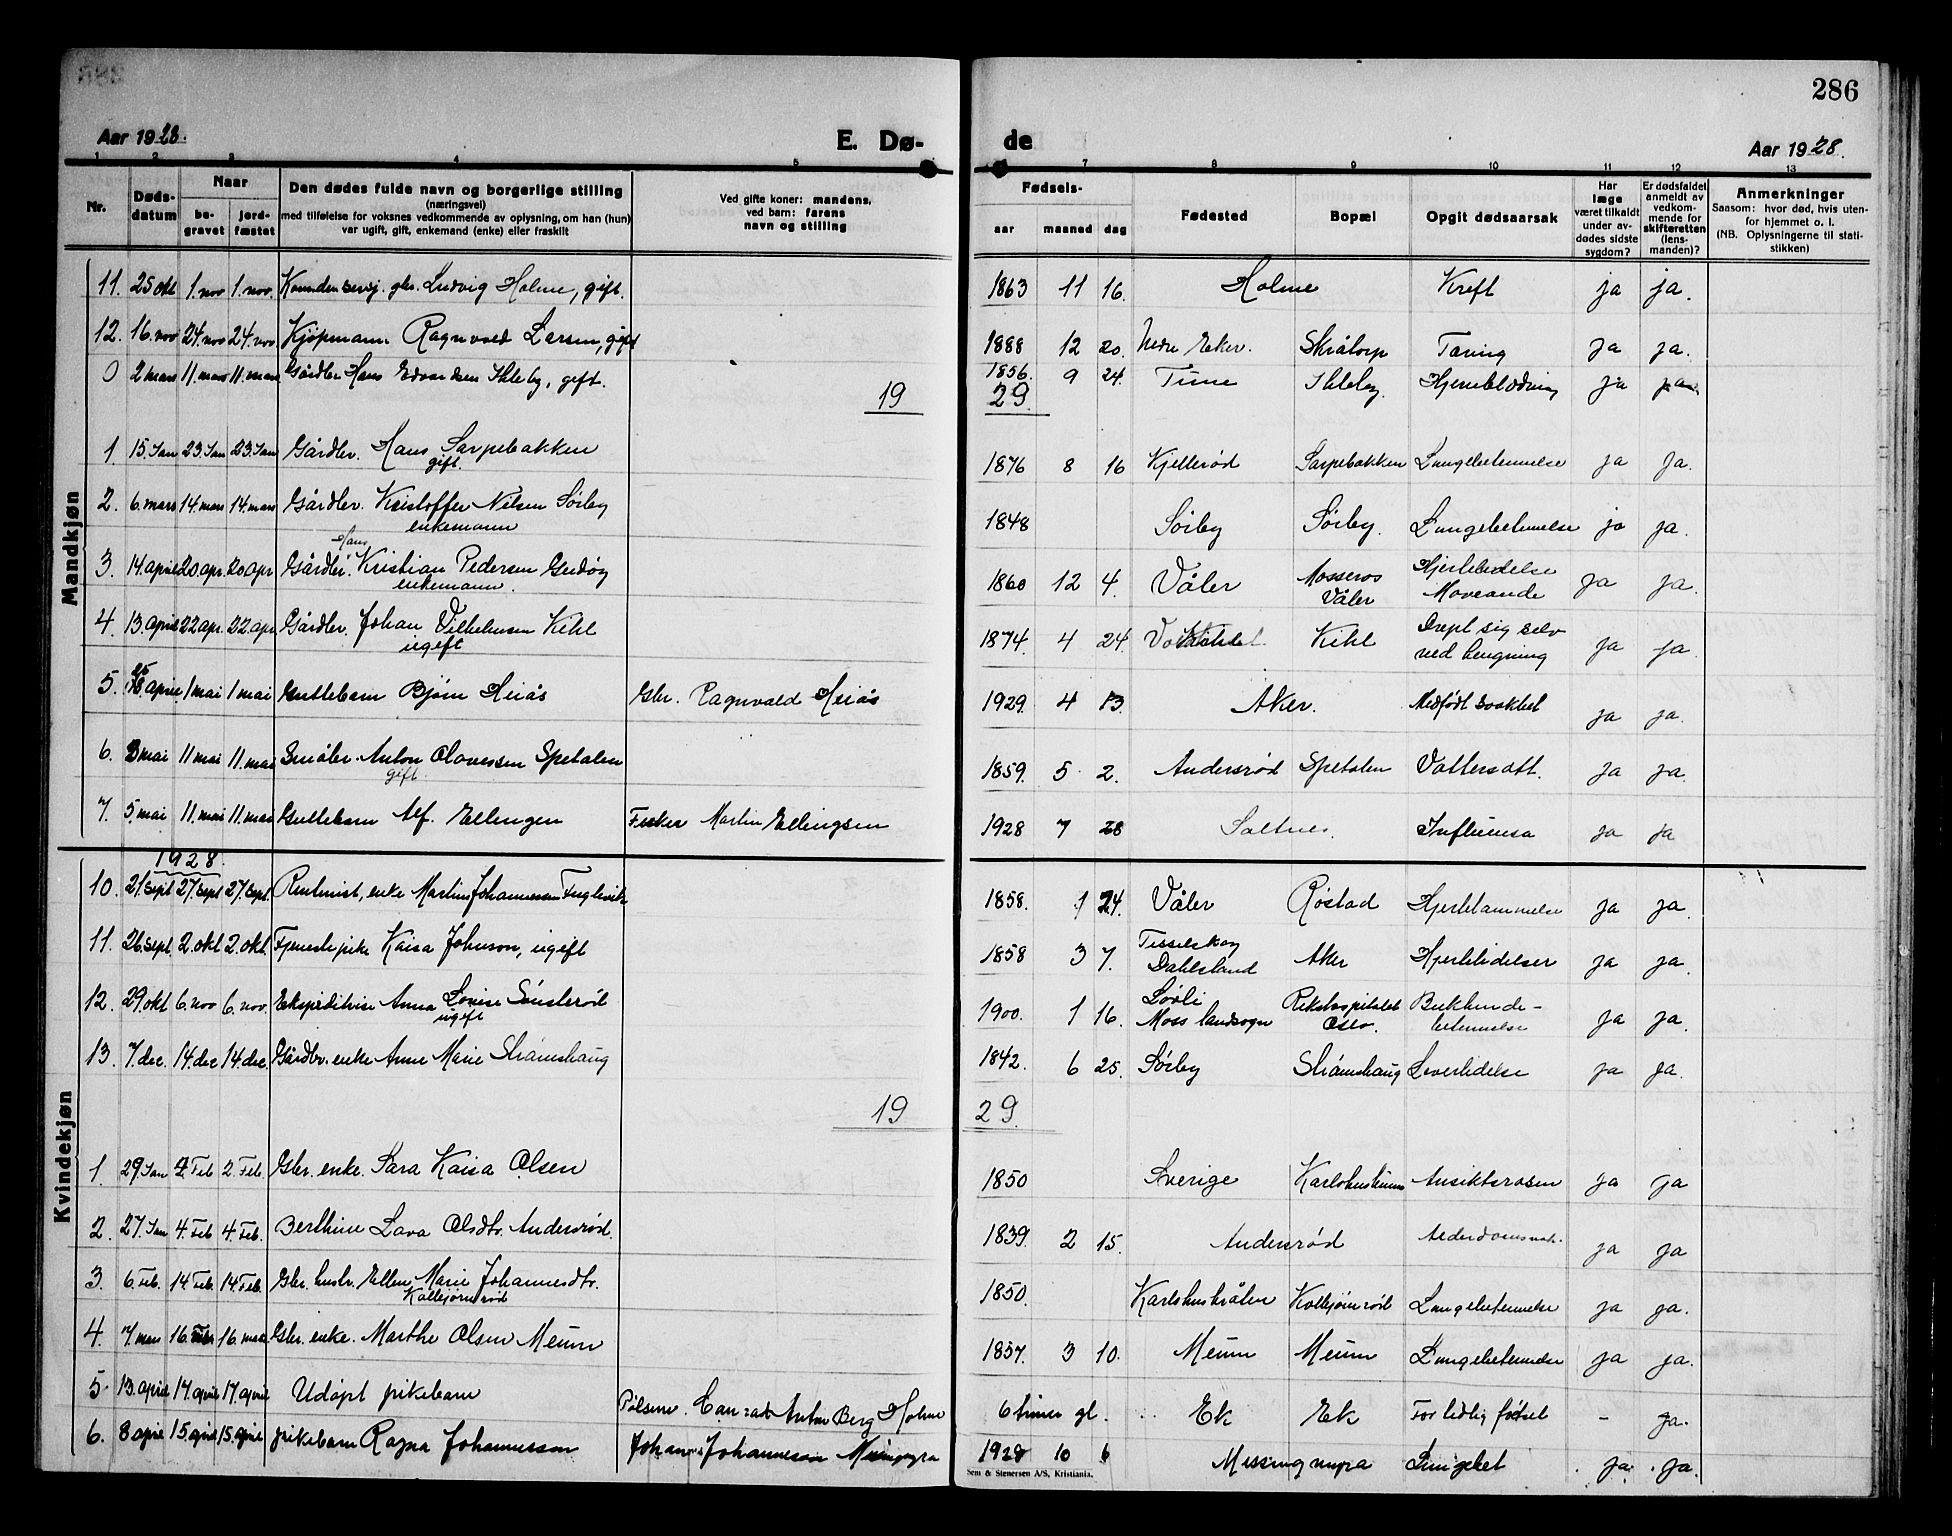 286
Aar 1928.
E. Dø-
de
Aar 1928.
1 2 3 4 5 7 8 9 10 11 12 13
Nr.
Døds-
datum
Naar
be-
gravet
jord-
fæstet
Den dødes fulde navn og borgerlige stilling
(næringsvei)
med tilføielse for voksnes vedkommende av oplysning, om han (hun)
var ugift, gift, enkemand (enke) eller fraskilt
Ved gifte koner: mandens,
ved barn: farens
navn og stilling
Fødsels-
aar maaned dag
Fødested
Bopæl
Opgit dødsaarsak
Har
læge
været tilkaldt
under av-
dødes sidste
sygdom?
Er dødsfaldet
anmeldt av
vedkom-
mende for
skifteretten
(lens-
manden)?
Anmerkninger
Saasom: hvor død, hvis uten-
for hjemmet o. l.
(NB. Oplysningerne til stati-
stikken)
Mandkjøn
11. 25 okt 1. nov 1. nov. Ludvig Holme, gift. 1863 11 16. Holme Kreft ja ja.
12. 16. nov 24. nov 24. nov. Kjøpmann Ragnvald Larsen, gift 1888 12 20. Nedre Eker. Skråtorp Tæring ja ja.
0 2 mars 11. mars 11. mars Gårdbr Hans Edvardsen Ihleby, gift. 1856. 9 24. Tune Ihleby. Hjerneblødning ja
19 29
1. 15. Jan 23. Jan 23. Jan Gårdbr. Hans Sarpebakken 1876 8 16 Kjellerød Sarpebakken Lungebetennelse ja ja.
gift.
2. 6. mars 14. mars 14. mars Gårdbr. Kristoffer Nilsen Sørby 1848 Sørby Sørby. Lungebetennelse ja ja.
enkemann
Hans
3. 14. april 20 apr. 20 apr Gårdbr. Kristian Pedersen 1860 12 4. Våler Mosseros Våler Hjertelidelse ja ja.
enkemann.
4. 13. april 22 apr. 22 apr. Gårdbr. Johan Vilhelmsen Kihl 1874. 4 24. Kihl Drept sig selv ved hengning ja ja.
ugift
5. april 1 mai 1 mai Guttebarn Bjørn Heiås Gbr. Ragnvald Heiås 1929. 4 13. Aker. Medfødt svakhet ja ja.
6. 3 mai 11 mai 11. mai Småbr. Anton Olavessen Spetalen 1859. 5 2. Andersrød Spetalen Vattersott. ja ja.
gift.
7. 5. mai 11. mai 11. mai Guttebarn Alf. Ellingsen Fisker Martin Ellingsen 1928 7 28 Saltnes. Influensa ja ja
Kvindekjøn
1928.
10. 21. sept 27. sept 27. sept. Rentenist, enke Johannessen Fuglevik 1858. 1 24. Våler Røstad Hjertelammelse ja ja.
11. 26. sept. 2. okt 2. okt. Tjenestepike Kaisa Johnson, ugift 1858 3 7. Tisselskog Dahlsland Aker Hjertelidelser ja ja.
12. 29. okt 6. nov 6. nov. Anna Lovise Sønsterød 1900. 1 16. Moss landsogn Rikshospitalet Oslo. Bukhinde-betennelse ja ja.
ugift
13. 7. dec. 14. dec 14. dec. Gårdbr. enke Anne Marie Strømshaug 1842. 6 25. Sørby Strømshaug Leverlidelse ja ja.
19 29.
1. 29. Jan Feb 2. Feb Gbr. enke. Sara Kaisa Olsen 1850 Sverige Karlshus Ansiktsrosen ja ja
2. 27. Jan 4. Feb 4. Feb. Berthine Lava Olsdtr. Andersrød. 1839. 2 15. Andersrød ja ja
3. 6. Feb. 14. Feb. 14. Feb. Gbr. hustr. Ellen Marie Johannesdtr. 1850. Kolbjørnrød Lungebetennelse ja ja.
Kolbjørnrød
4. 7. mars 16. 16. mars Gbr. enke. Marthe Olsen Meum 1857. 3 10. Meum Meum Lungebetennelse ja ja.
5. 13. april 17. april 17. april Udøpt pikebarn Pølsem. Conrad Anton Berg Holme 6 timer gl. Ek Ek For tidlig fødsel - ja.
6. 8 april 15. april 15. april pikebarn Ragna Johannesson Johannes Johannesson 1928 10 6 Missingmyra ja. ja.
Sem & Stenersen A/S, Kristiania.